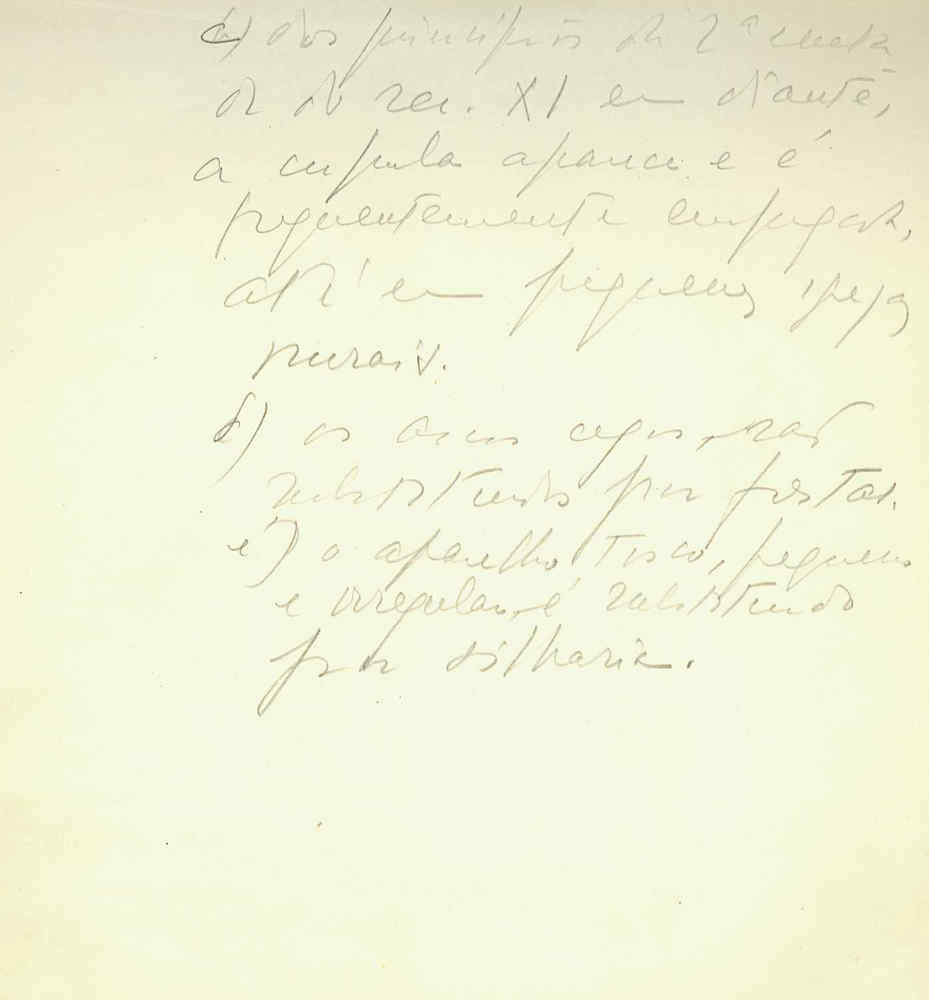 a) dos principios da 2ª meta
de do sec. XI em diante,
a cupula aparece e é
frequentemente empregada,
até em pequenas igrejas
rurais.
b) os arcos cegos, são
substituidos por frestas.
c) o aparelho tosco, pequeno
e irregular, é substituido
por silharia.